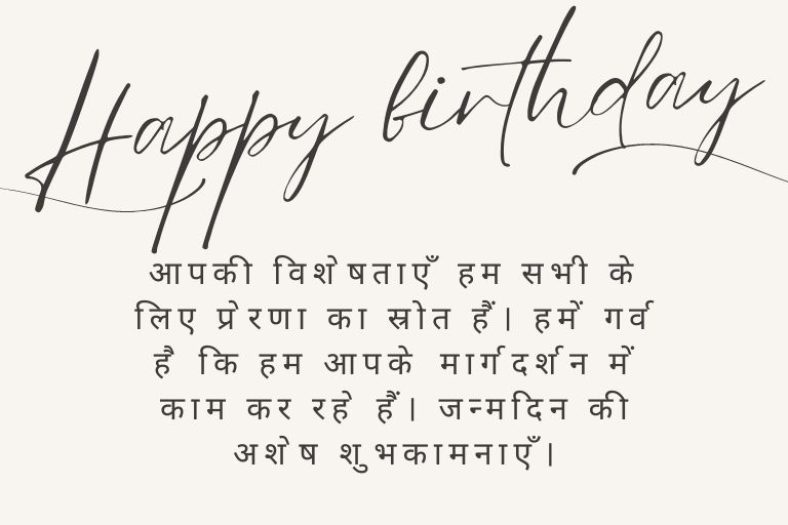 Happy birthday
आपकी विशेषताएँ हम सभी के
लिए प्रेरणा का स्रोत हैं। हमें गर्व
है कि हम आपके मार्गदर्शन में
काम कर रहे हैं। जन्मदिन की
अशेष शुभकामनाएँ।